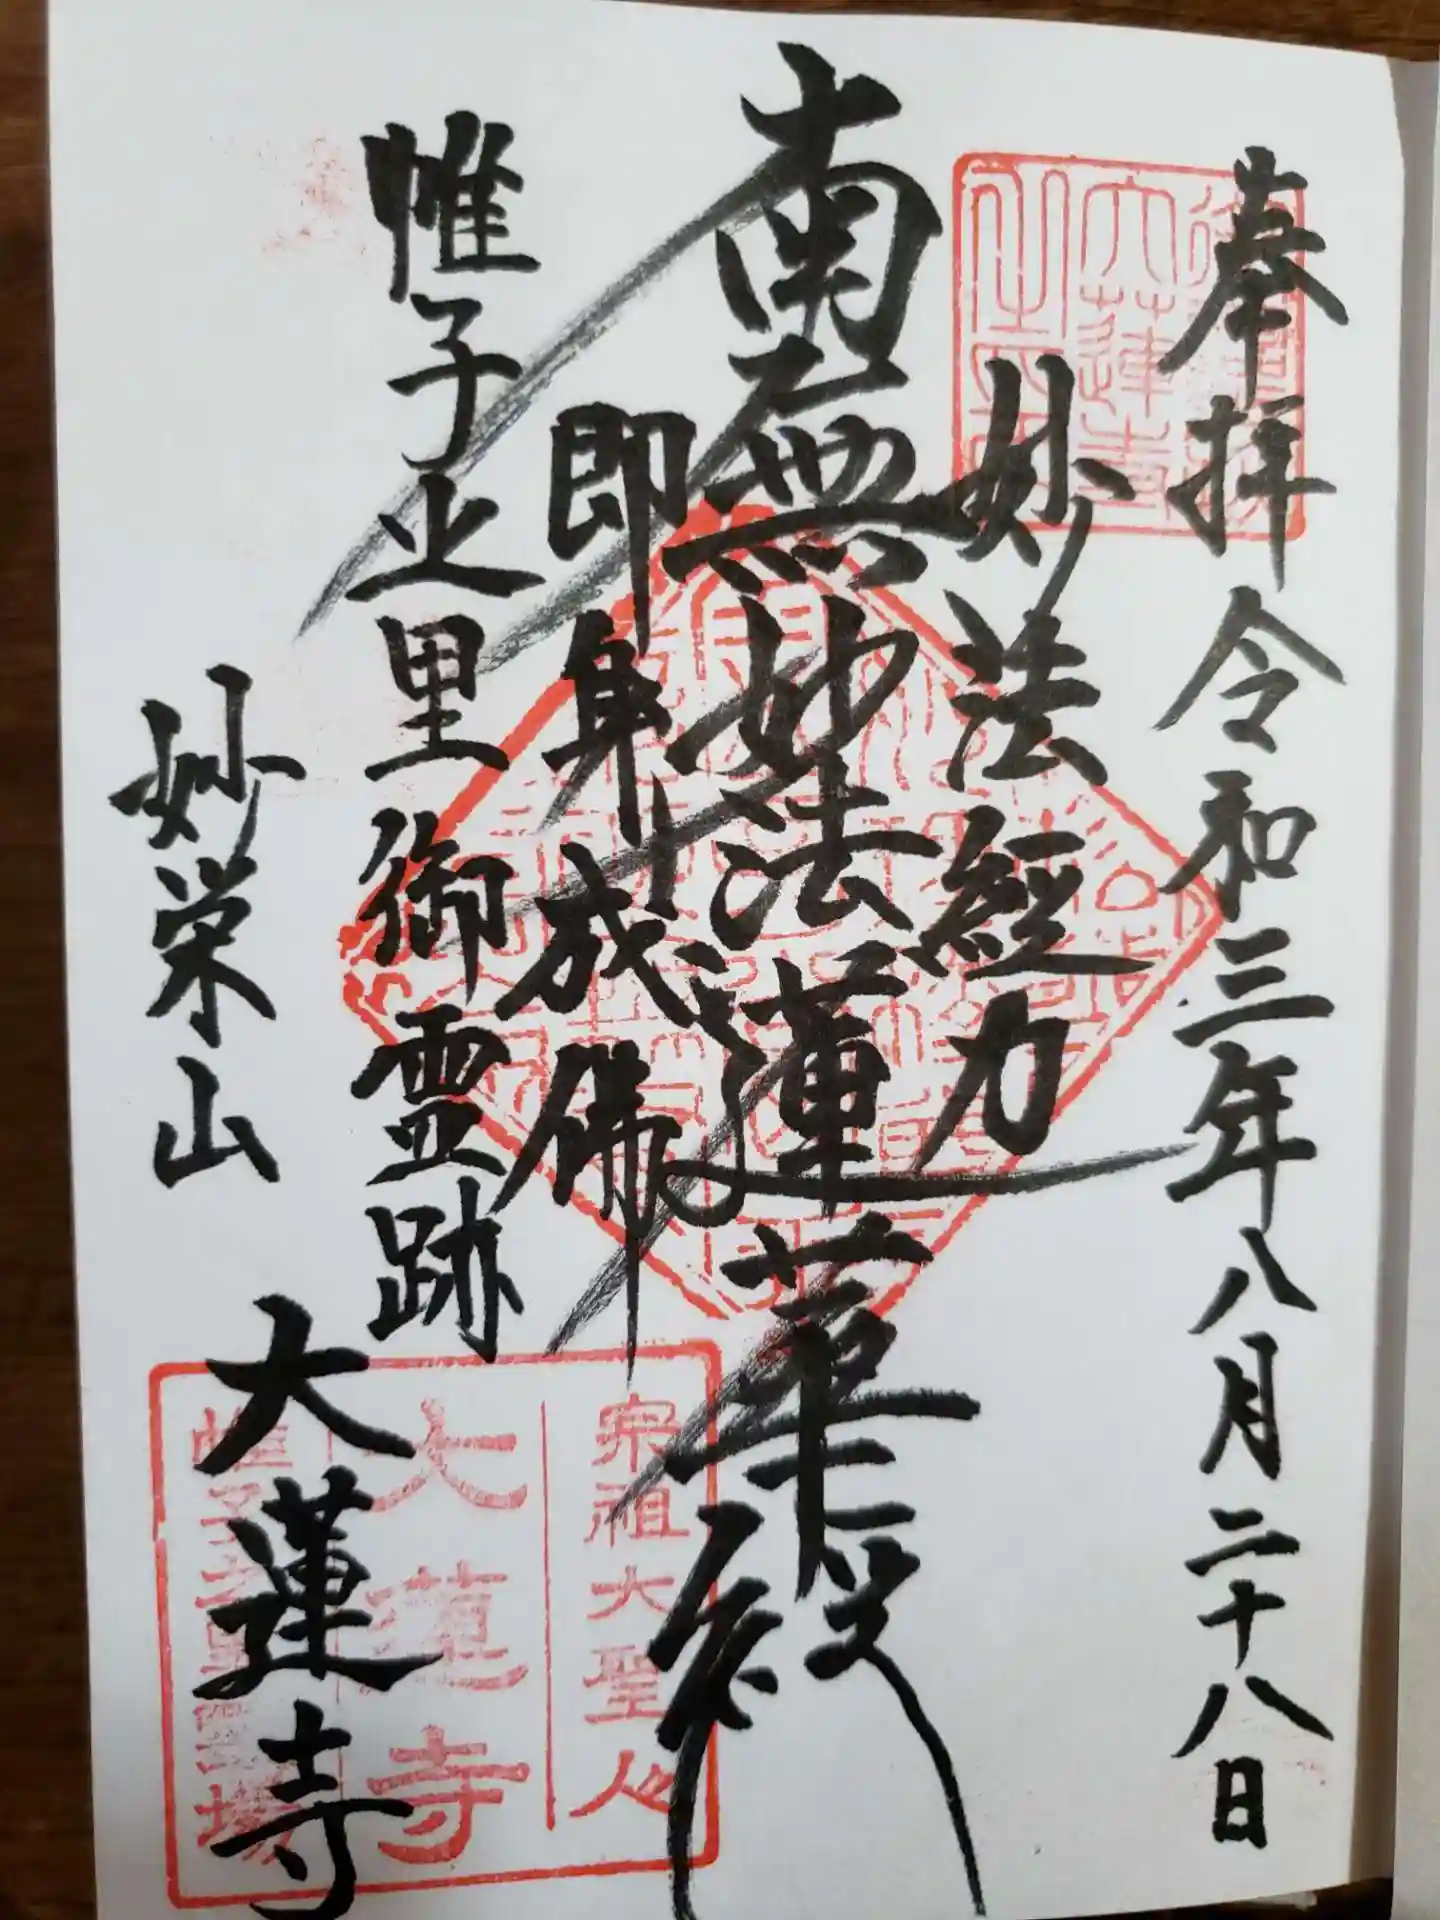 奉拝 令和三年八月二十八日
妙法經力
南無妙法蓮華経
即身成佛
帷子之里御霊跡
妙栄山
大蓮寺
宗祖大聖人
大蓮寺